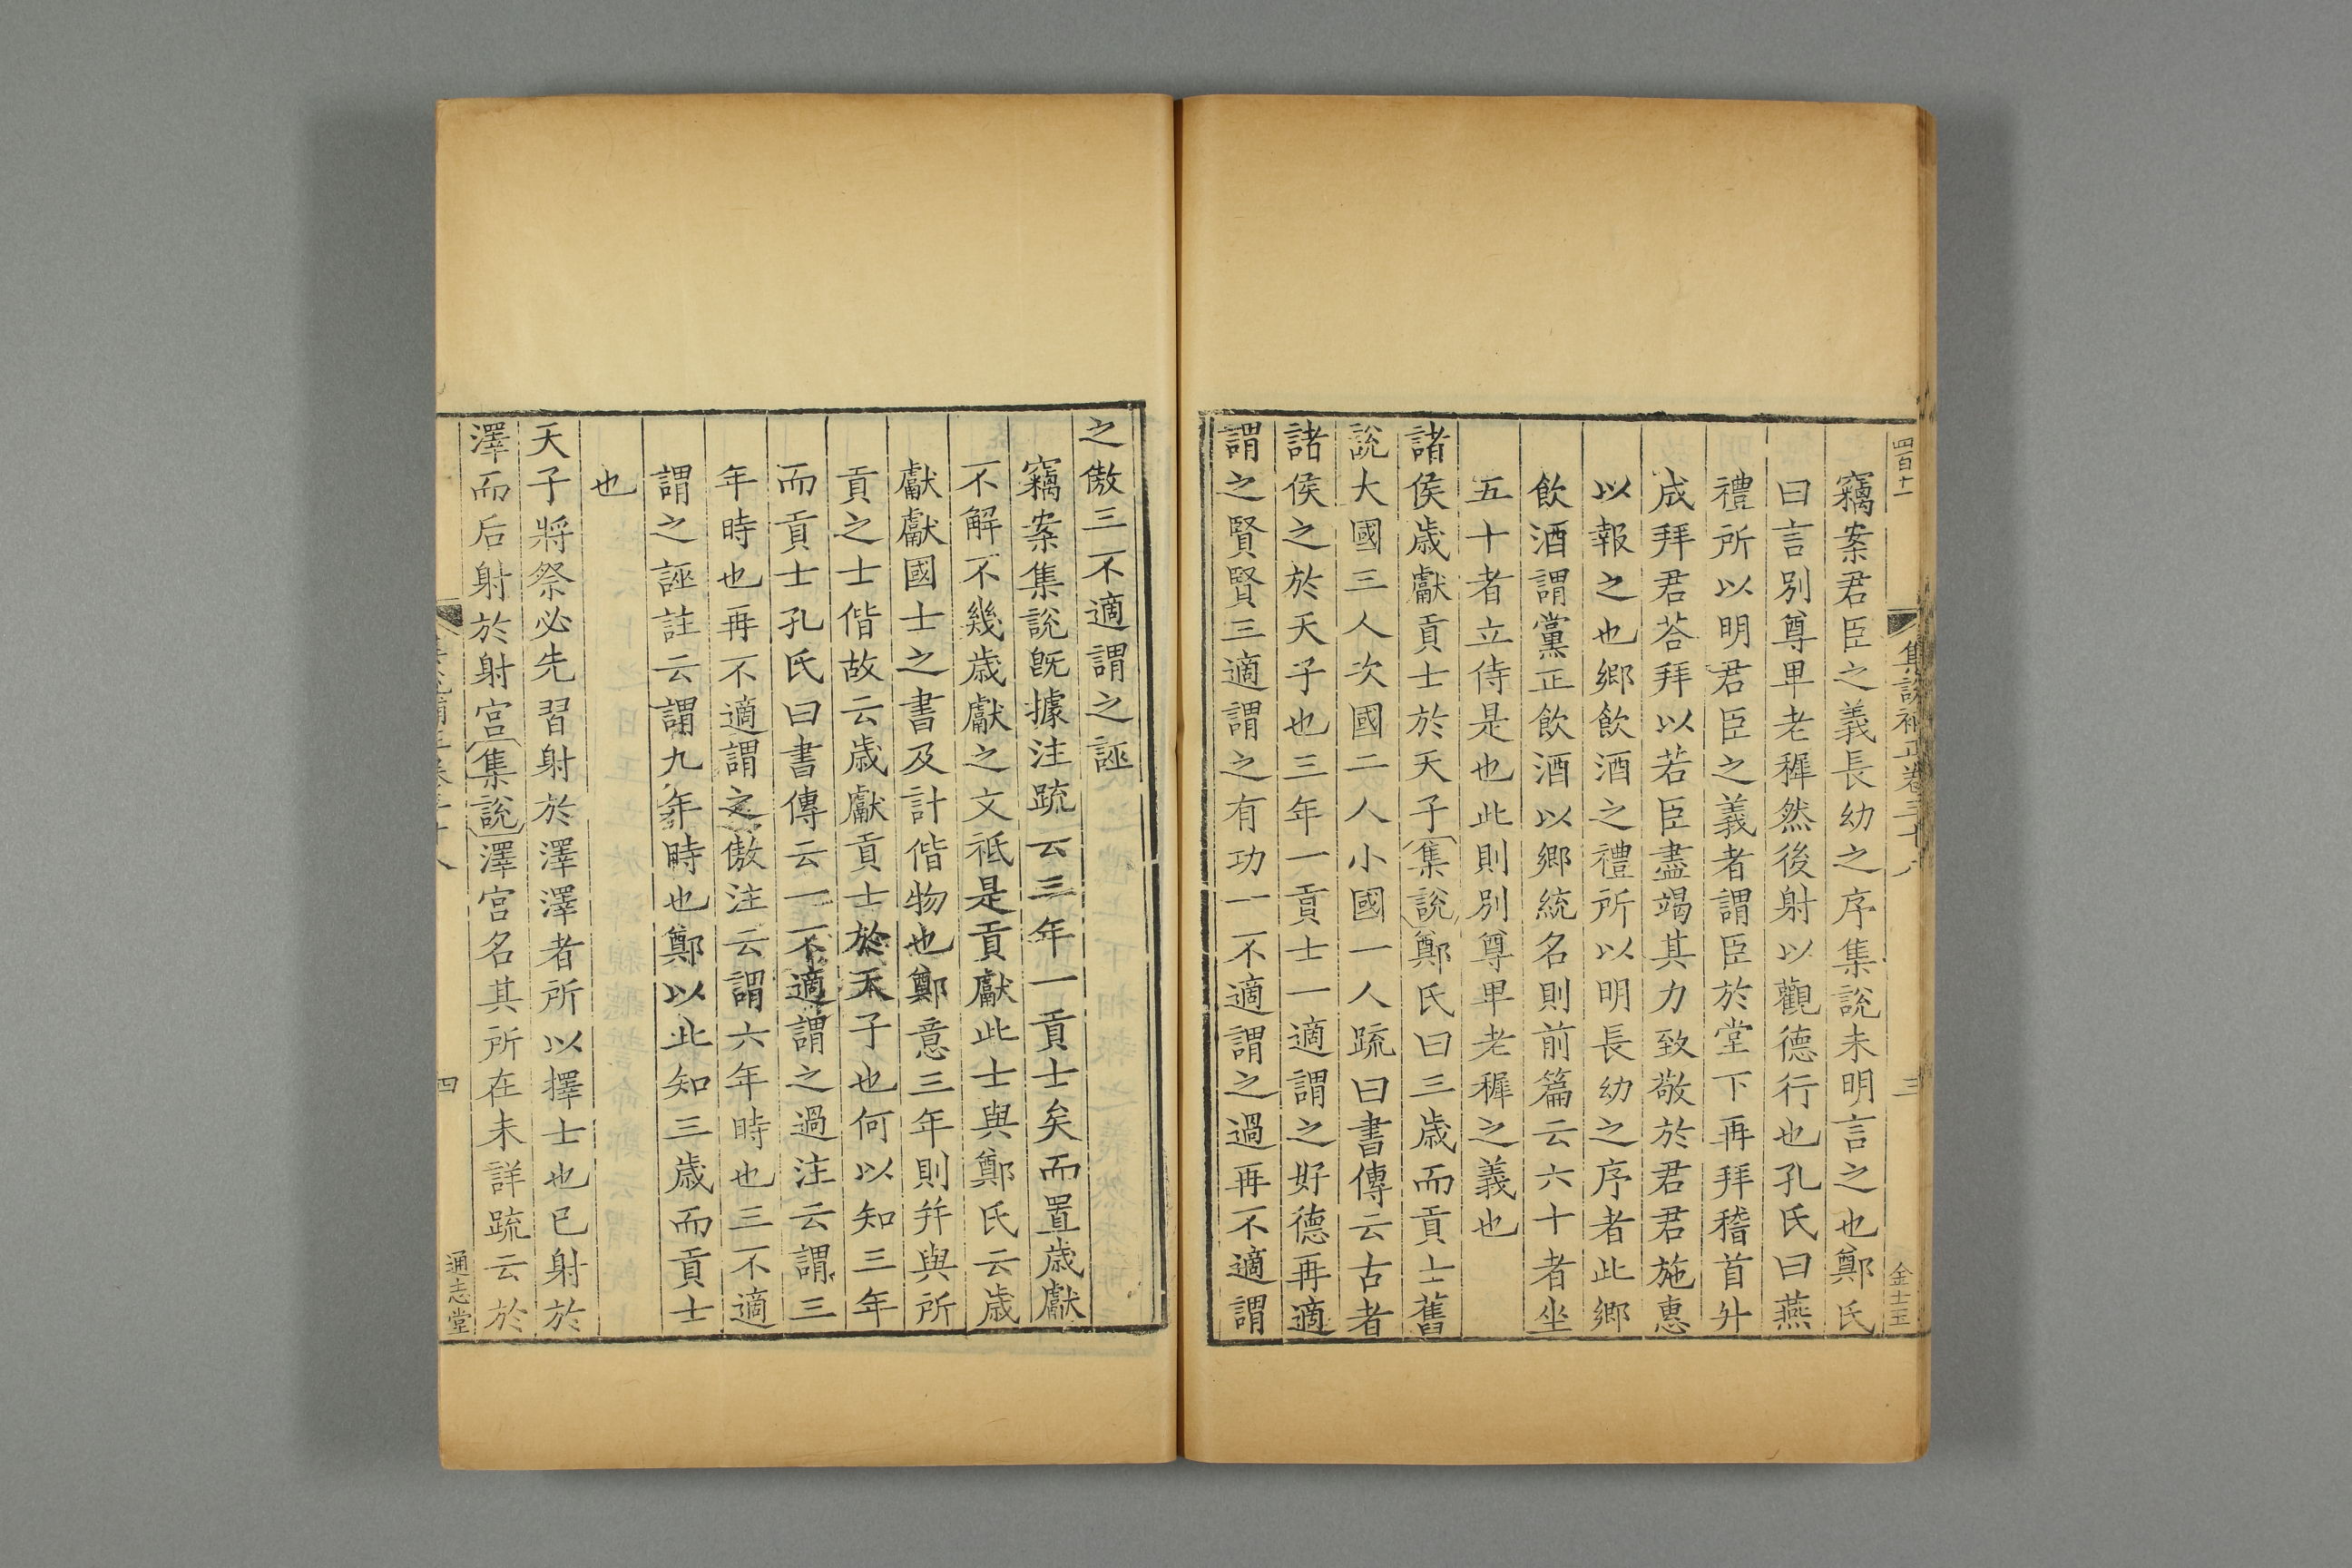 四百十一
集說補正卷三十八
三
金士玉
竊案君臣之義長幼之序集說未明言之也鄭氏
曰言別尊卑老穉然後射以觀德行也孔氏曰燕
禮所以明君臣之義者謂臣於堂下再拜稽首升
成拜君荅拜以若臣盡竭其力致敬於君君施惠
以報之也鄉飲酒之禮所以明長幼之序者此鄉
飲酒謂黨正飲酒以鄉統名則前篇云六十者坐
五十者立侍是也此則別尊卑老穉之義也
諸侯歲獻貢士於天子集說鄭氏曰三歲而貢士舊
說大國三人次國二人小國一人疏曰書傳云古者
諸侯之於天子也三年一貢士一適謂之好德再適
謂之賢賢三適謂之有功一不適謂之過再不適謂
之傲三不適謂之誣
竊案集說旣據注疏云三年一貢士矣而置歲獻
不解不幾歲獻之文祗是貢獻此士與鄭氏云歲
獻獻國士之書及計偕物也鄭意三年則并與所
貢之士偕故云歲獻貢士於天子也何以知三年
而貢士孔氏曰書傳云一不適謂之過注云謂三
年時也再不適謂之傲注云謂六年時也三不適
謂之誣註云謂九年時也鄭以此知三歲而貢士
也
天子將祭必先習射於澤澤者所以擇士也已射於
澤而后射於射宮集說澤宮名其所在未詳疏云於
四
通志堂